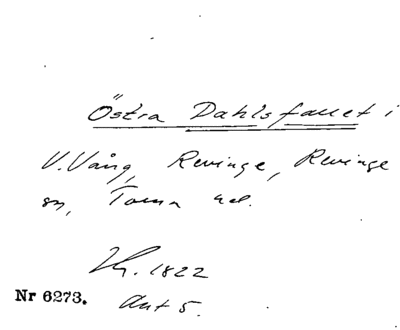 Östra Dahlsfallet i
V.Vång, Revinge, Revinge
sn, Torna hd.
Zh. 1822
Nr 6273. Akt 5.